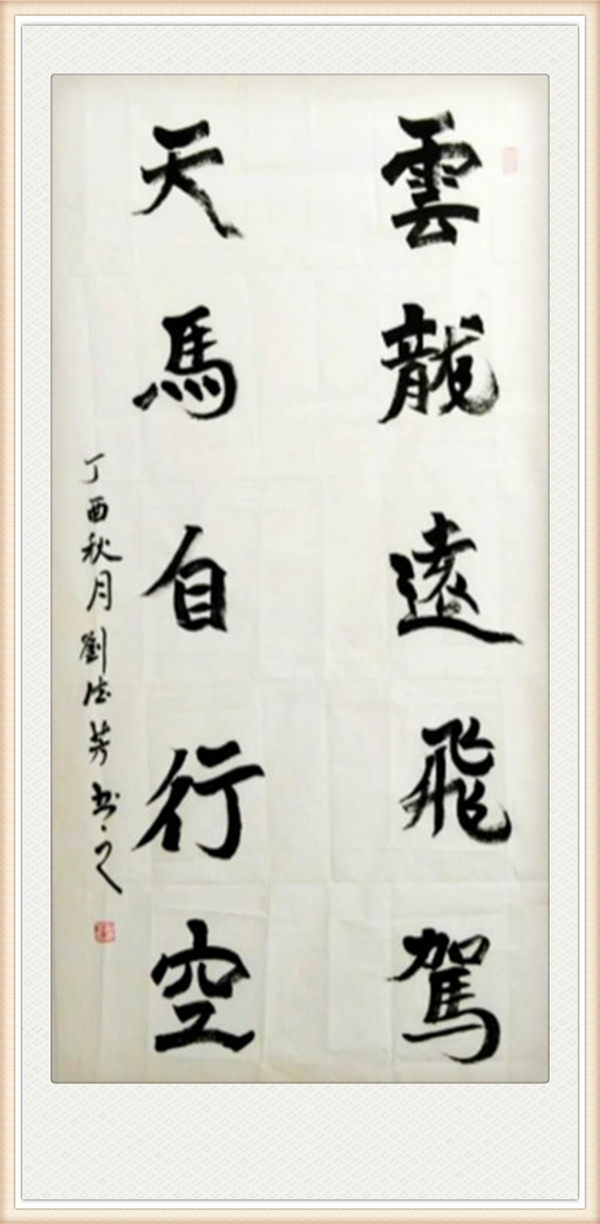 雲龍遠飛駕
天馬自行空
丁酉秋月劉德芳书之